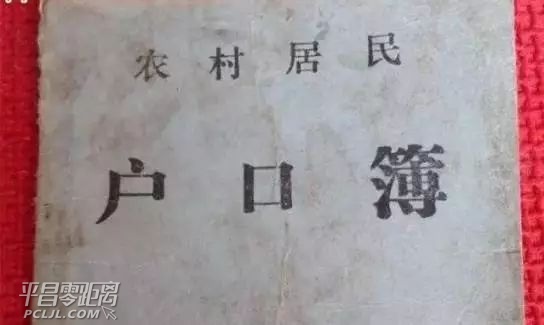 农村居民
户口簿
平昌零距离
PCLJL.COM